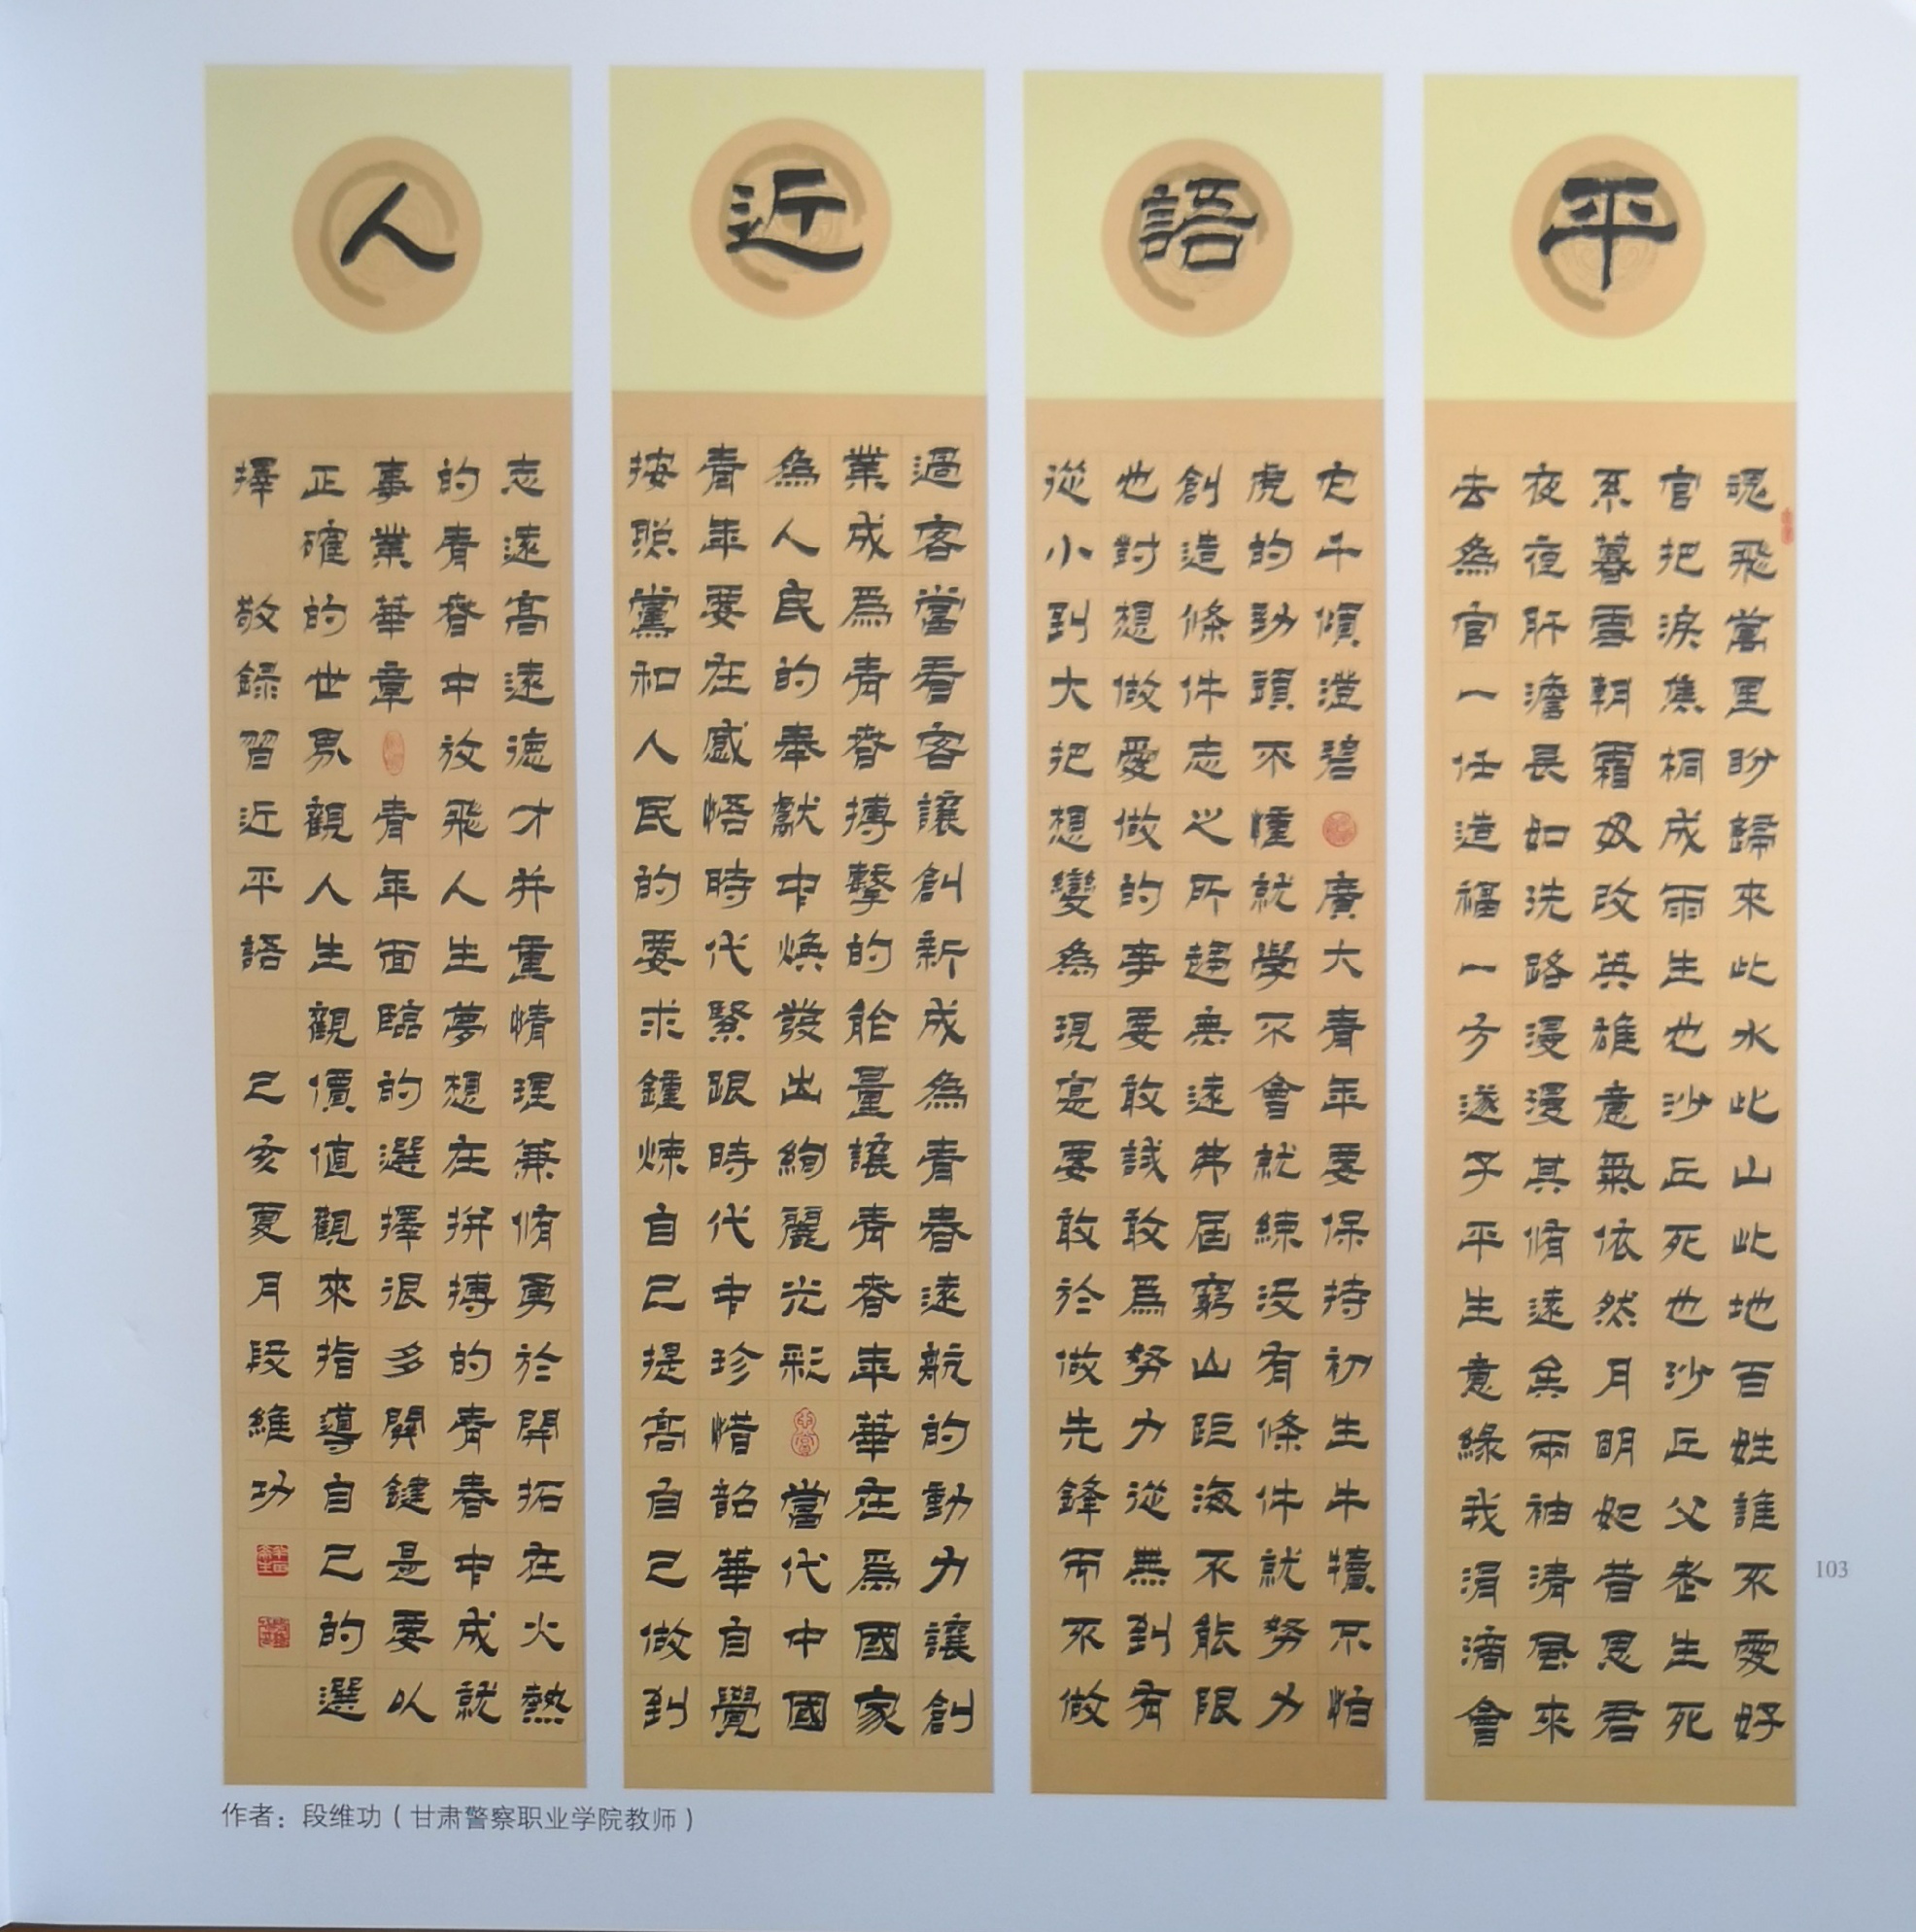 平
魂飛萬里盼歸來此水此山此地百姓誰不愛好
官把淚焦桐成雨生也沙丘死也沙丘父老生死
系暮雪朝霜毋改英雄意氣依然月明如昔思君
夜夜肝膽長如洗路漫漫其脩遠矣兩袖清風來
去為官一任造福一方遂了平生意綠我涓滴會
語
它千傾澄碧 廣大青年要保持初生牛犢不怕
虎的勁頭不懂就學不會就練没有條件就努力
創造條件志之所趨無遠弗屆窮山距海不能限
也對想做愛做的事要敢試敢爲努力從無到有
從小到大把想變為現寔要敢於做先鋒而不做
近
過客當看客讓創新成為青春遠航的動力讓創
業成爲青春搏擊的能量讓青春年華在爲國家
為人民的奉獻中煥發出絢麗光彩 當代中國
青年要在感悟時代緊跟時代中珍惜韶華自覺
按照黨和人民的要求鍾煉自己提高自己做到
人
志遠高遠德才并重情理兼脩勇於開拓在火熱
的青春中放飛人生夢想在拼搏的青春中成就
事業華章 青年面臨的選擇很多關鍵是要以
正確的世界觀人生觀價值觀來指導自己的選
擇 敬錄習近平語 己亥夏月段維功
作者：段维功（甘肃警察职业学院教师）
103